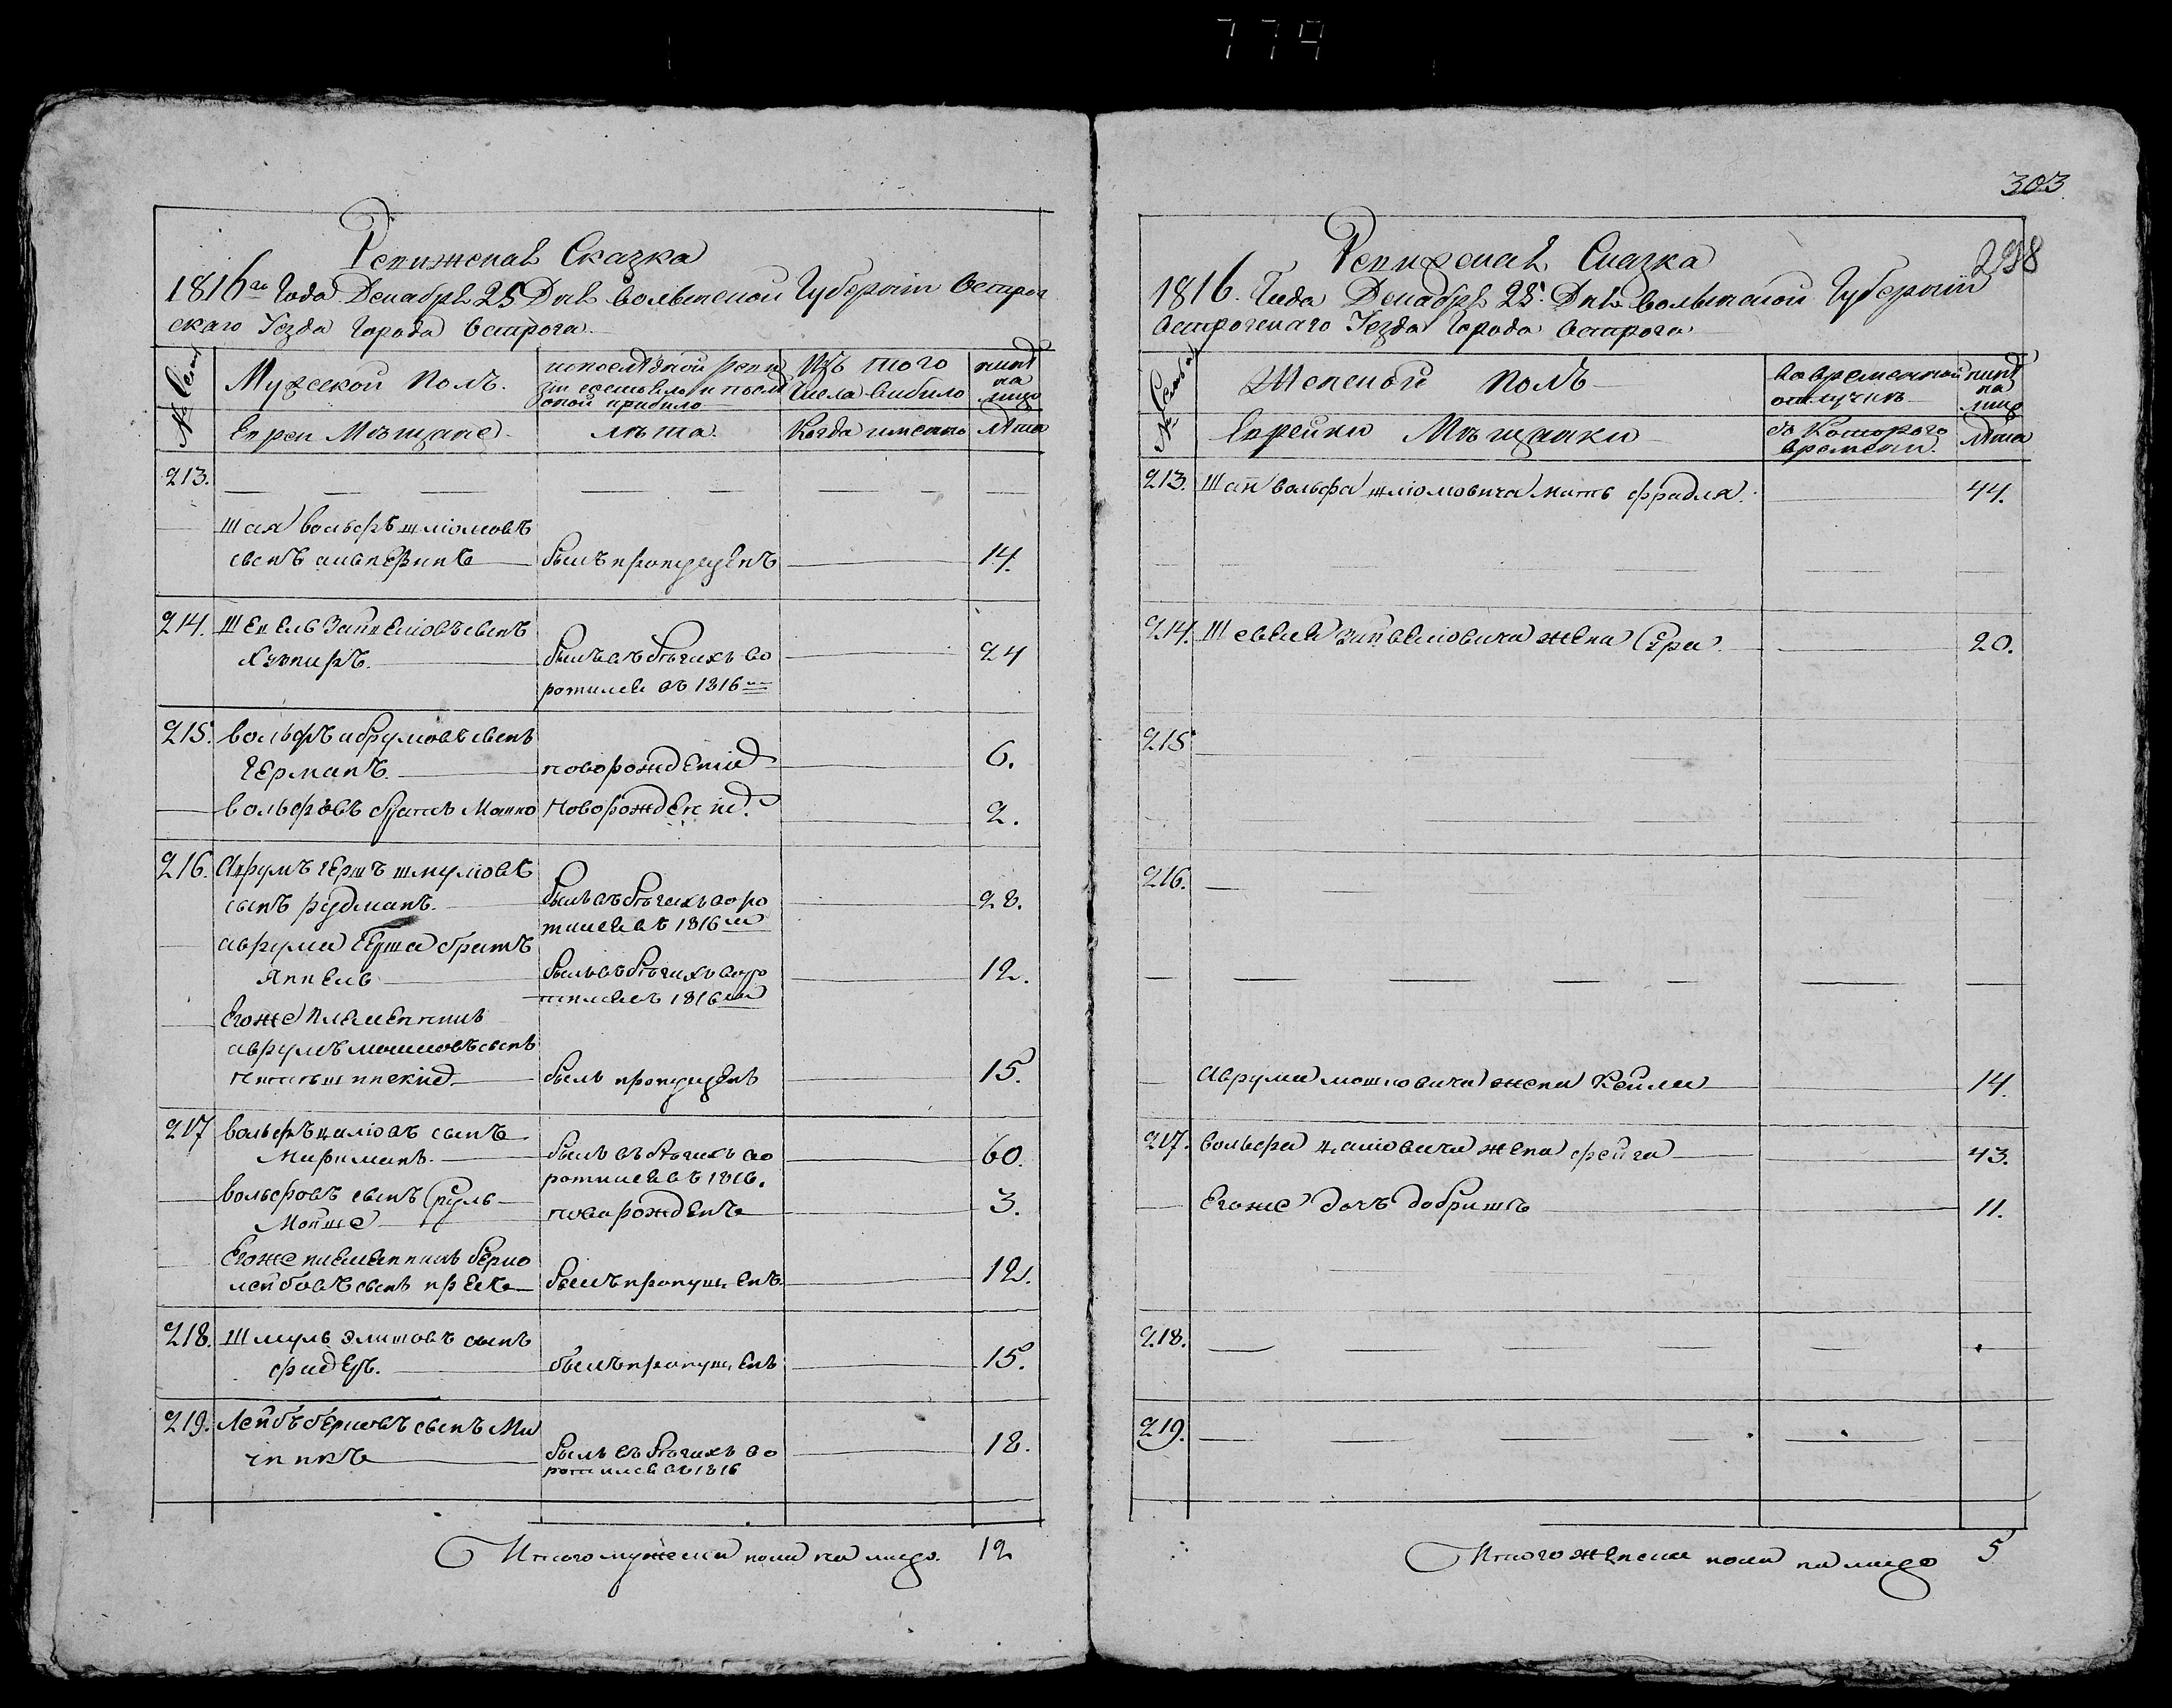 779
Ревижская Сказка
1816го Года Декабря 25 Дня Волынской Губернии Острог
скаго Уезда Города Острога
№ Семьи
Мужеской Полъ.
Изъ того
числа выбыло
ныне
на
лицо
Евреи Мѣщане
лѣта.
Когда именно
Лѣта
213.
Шая Вольфъ Шліомовъ
сынъ 14.
былъ пропущенъ
214. Шевель Зайвеліовъ сынъ
былъ въ бѣгахъ во
ротился въ 1816м
24
215. Вольфъ Абрумовъ сынъ
Германъ.
новорожденій
6.
Вольфовъ братъ Манко
Новорожденій.
2.
216. Аврумъ Гершъ Шмуліовъ
сынъ Рудманъ.
былъ въ бѣгахъ воро
тился въ 1816м
28.
Аврума Герша братъ
Янкель
былъ въ бѣгахъ воро
тился въ 1816м
12.
Егоже племенникъ
Аврумъ Мошковъ сынъ
былъ пропущенъ
15.
217 Вольфъ Цаліовъ сынъ
былъ въ бѣгахъ во
ротился въ 1816.
60.
Вольфовъ сынъ Сруль
Мойше
новорожденъ
3.
Егоже племенникъ Берко
Лейбовъ сынъ
былъ пропущенъ
12.
218. Шмуль Элишовъ сынъ
Фидеръ.
былъ пропущенъ
15.
219. Лейбъ Берковъ сынъ Ми
былъ въ бѣгахъ во
ротился въ 1816
18.
Итого мужеска пола на лицо. 12
303
298
Ревижская Сказка
1816. Года Декабря 25. Дня Волынской Губерніи
Острогскаго Уезда Города Острога
№ Семьи
Женской полъ
во временной
отлучкѣ
ныне
на
лицо
Еврейки Мѣщанки
съ Котораго
времени.
Лѣта
213. Шаи Вольфа Шліомовича мать Фрадля. 44.
214. Шевеля Зайвеліовича жена Сура. 20.
215
216.
Аврума Мошковича жена Кейла 14.
217. Вольфа Цаліовича жена Фейга 43.
Егоже дочь Добришъ 11.
218.
219.
Итого женска пола на лицо 5